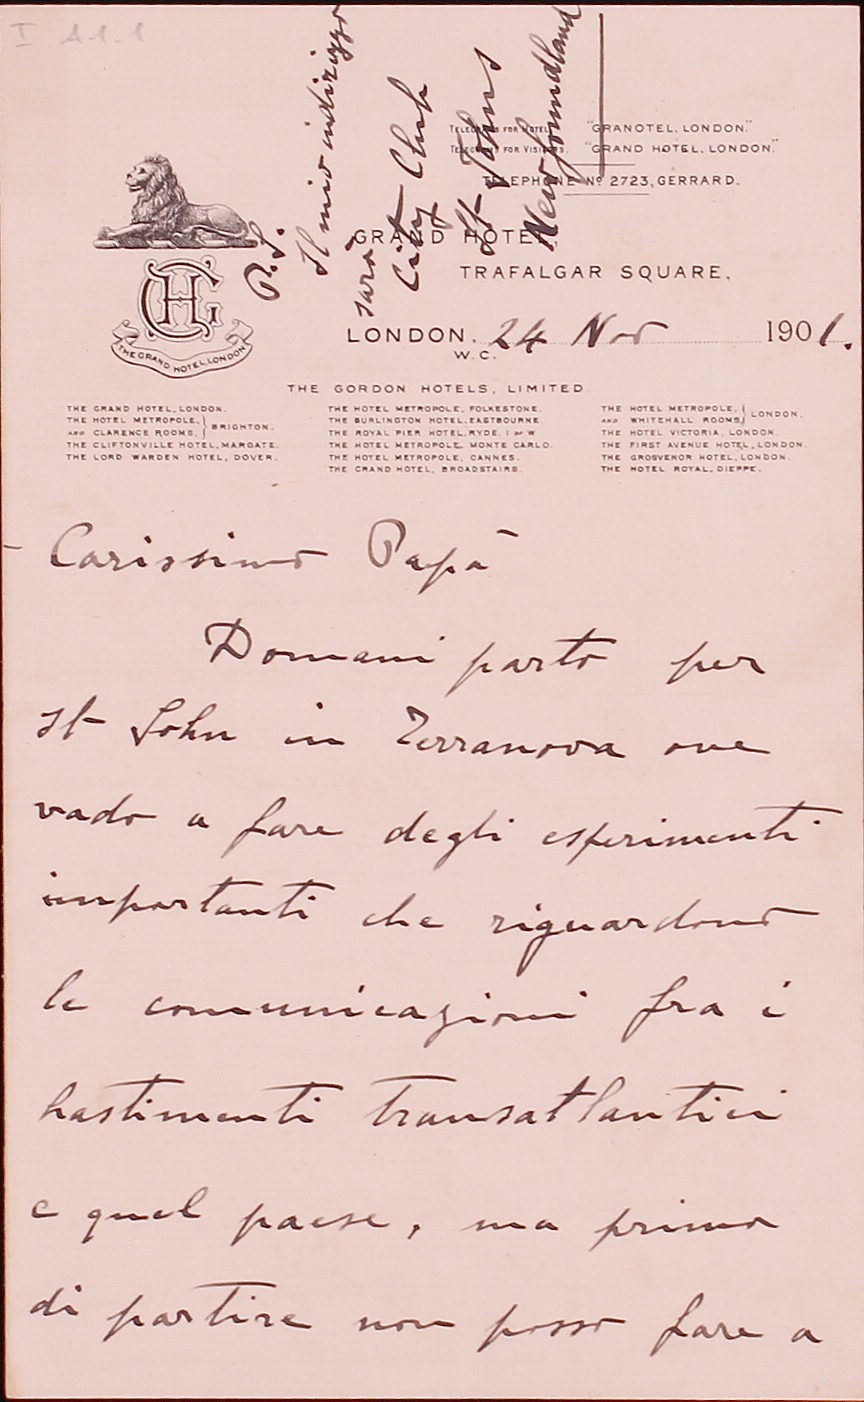 I A1.1
P.S.
Il mio indirizzo
sarà
City Club
St Johns
Newfoundland
TELEGRAMS FOR HOTEL, "GRANOTEL, LONDON."
TELEGRAMS FOR VISITORS. "GRAND HOTEL, LONDON."
TELEPHONE Nº 2723, GERRARD.
GRAND HOTEL,
TRAFALGAR SQUARE,
GH
THE GRAND HOTEL, LONDON
LONDON. 24 Nov 1901.
W.C.
THE GORDON HOTELS, LIMITED
THE GRAND HOTEL, LONDON.
THE HOTEL METROPOLE,
AND CLARENCE ROOMS, } BRIGHTON.
THE CLIFTONVILLE HOTEL, MARGATE.
THE LORD WARDEN HOTEL, DOVER.
THE HOTEL METROPOLE, FOLKESTONE.
THE BURLINGTON HOTEL, EASTBOURNE.
THE ROYAL PIER HOTEL, RYDE, I OF W
THE HOTEL METROPOLE, MONTE CARLO.
THE HOTEL METROPOLE, CANNES.
THE GRAND HOTEL, BROADSTAIRS.
THE HOTEL METROPOLE,
AND WHITEHALL ROOMS, } LONDON.
THE HOTEL VICTORIA, LONDON.
THE FIRST AVENUE HOTEL, LONDON.
THE GROSVENOR HOTEL, LONDON.
THE HOTEL ROYAL, DIEPPE.
Carissimo Papà
Domani parto per
St John in Terranova ove
vado a fare degli esperimenti
importanti che riguardono
le comunicazioni fra i
bastimenti transatlantici
e quel paese, ma prima
di partire non posso fare a